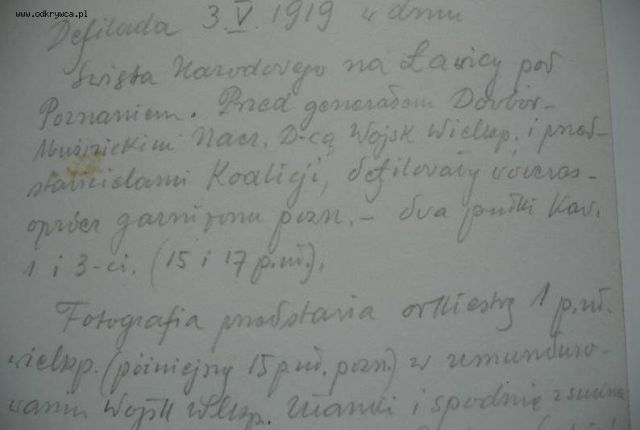 www.odkrywca.pl
Defilada 3 V. 1919 w dniu
Święta Narodowego na Ławicy pod
Poznaniem. Przed generałem Dowbór-
Muśnickim Nacz. D-cą Wojsk Wielkp. i przed-
stawicielami Koalicji, defilowały wówczas -
oprócz garnizonu pozn. - dwa pułki Kaw.
1 i 3-ci. (15 i 17 p.uł.),
Fotografia przedstawia orkiestrę 1 p.uł.
wielkp. (późniejszy 15 p.uł. pozn.) w umunduro-
waniu Wojsk Wlkp. Ułanki i spodnie z sukna